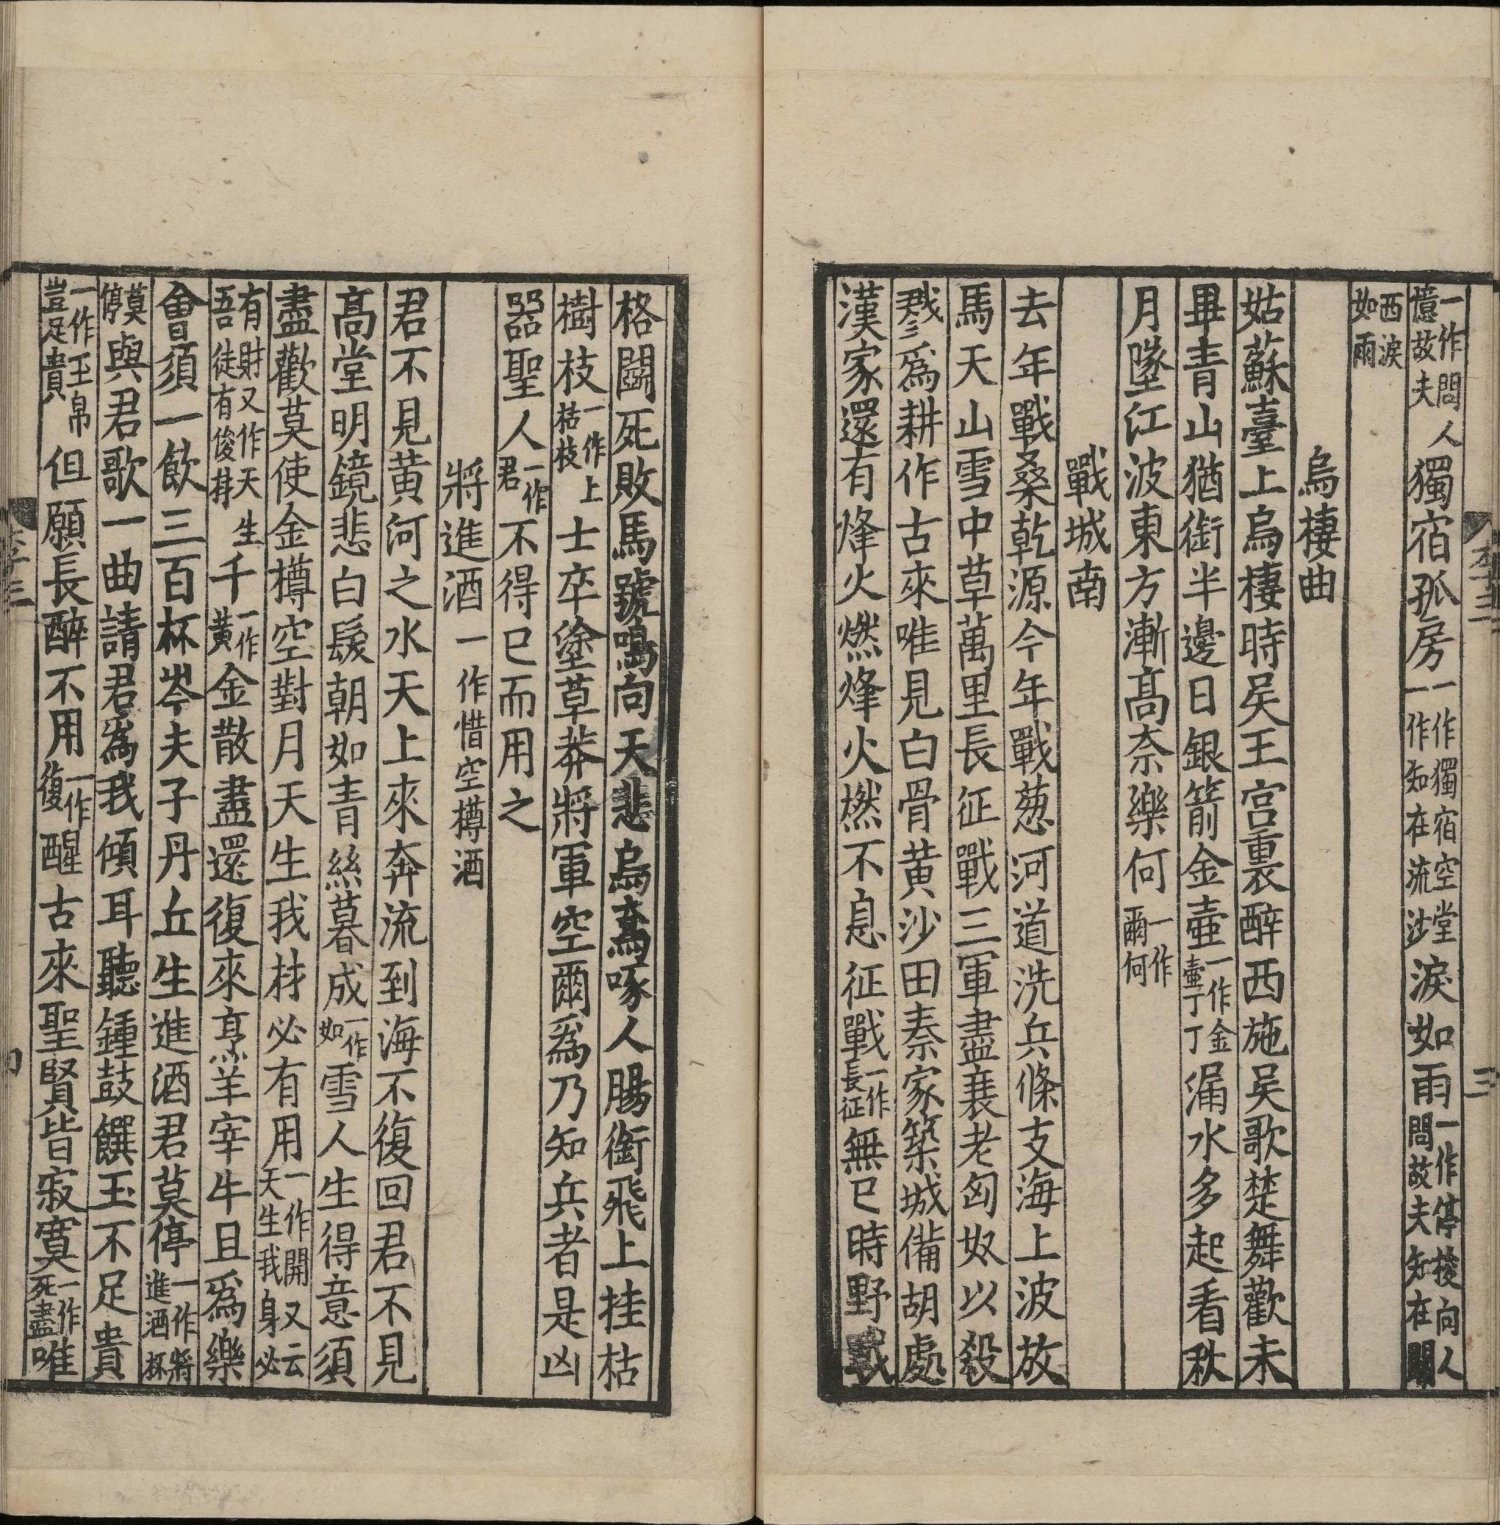 一作問人憶故夫獨宿孤房一作獨宿空堂一作知在流沙淚如雨一作停梭向人問故夫知在關
西淚如雨
烏棲曲
姑蘇臺上烏棲時吳王宮裏醉西施吳歌楚舞歡未
畢青山猶銜半邊日銀箭金壺一作金壺丁丁漏水多起看秋
月墜江波東方漸髙奈樂何一作爾何
戰城南
去年戰桑乾源今年戰葱河道洗兵條支海上波放
馬天山雪中草萬里長征戰三軍盡衰老匈奴以殺
戮爲耕作古來唯見白骨黄沙田秦家築城備胡處
漢家還有烽火燃烽火燃不息征戰一作長征無已時野戰
格鬪死敗馬號鳴向天悲烏鳶啄人腸銜飛上挂枯
樹枝一作上枯枝士卒塗草莽將軍空爾爲乃知兵者是凶
器聖人一作君不得已而用之
將進酒一作惜空樽酒
君不見黄河之水天上來奔流到海不復回君不見
髙堂明鏡悲白髮朝如青絲暮成一作如雪人生得意須
盡歡莫使金樽空對月天生我材必有用一作開又云天生我身必
有財又作天生吾徒有俊材千一作黄金散盡還復來烹羊宰牛且爲樂
會須一飲三百杯岑夫子丹丘生進酒君莫停一作將進酒杯
莫停與君歌一曲請君爲我傾耳聽鍾鼓饌玉不足貴
一作玉帛豈足貴但願長醉不用一作復醒古來聖賢皆寂寞一作死盡唯